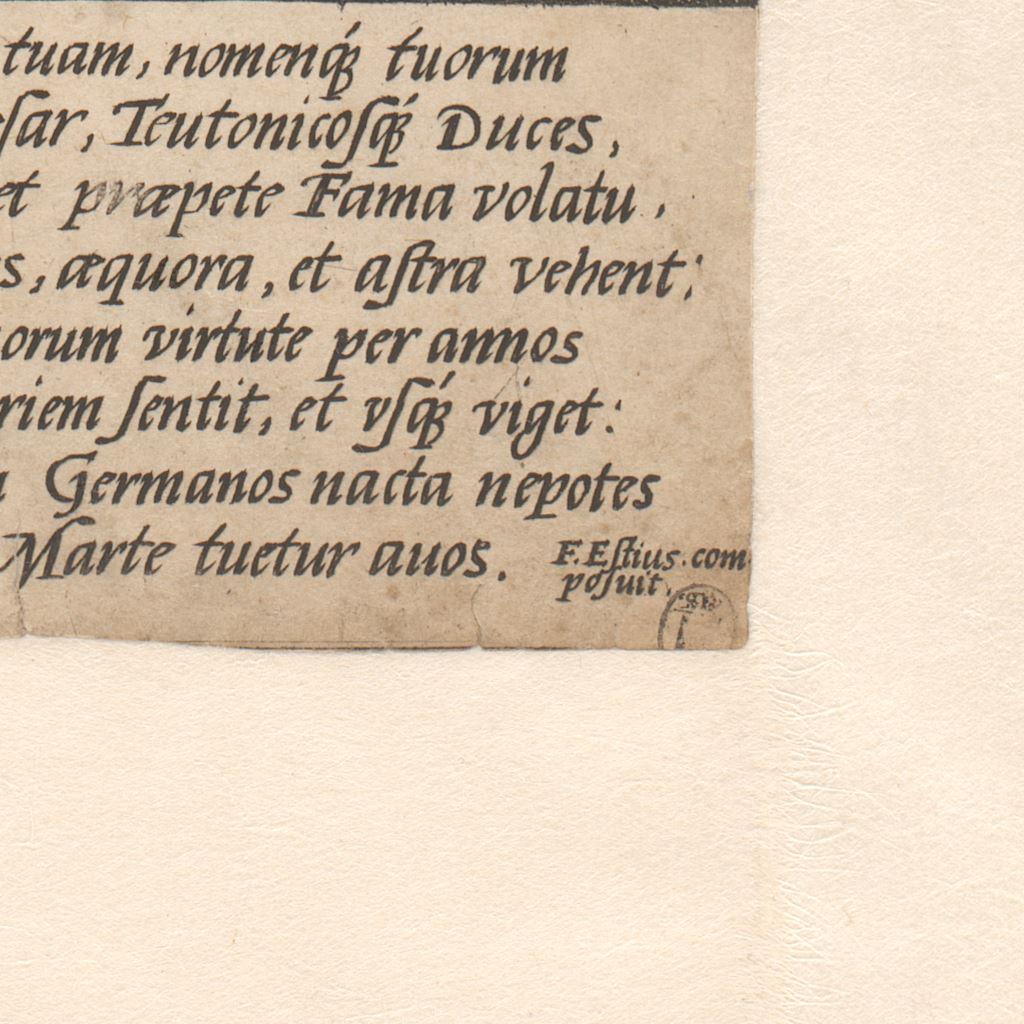 tuam, nomenq́ꝫ tuorum
ſar, Teutonicoſq́ꝫ Duces,
et præpete Fama volatu.
s, æquora, et aſtra vehent;
orum virtute per annos
riem ſentit, et vſq́ꝫ viget:
Germanos nacta nepotes
Marte tuetur auos.
F. Eſtius. com
poſuit.